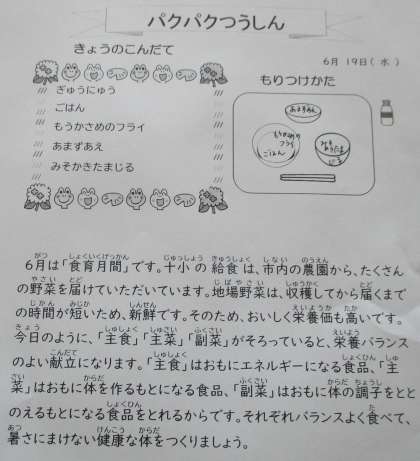 パクパクつうしん
きょうのこんだて
6月 19日(水)
ぎゅうにゅう
ごはん
もうかさめのフライ
あまずあえ
みそかきたまじる
もりつけかた
あまずあえ
もうかさめ
フライ
ごはん
みそ
かきたま
じる
6月は「食育月間」です。十小の給食は、市内の農園から、たくさん
の野菜を届けていただいています。地場野菜は、収穫してから届くまで
の時間が短いため、新鮮です。そのため、おいしく栄養価も高いです。
今日のように、「主食」「主菜」「副菜」がそろっていると、栄養バランス
のよい献立になります。「主食」はおもにエネルギーになる食品、「主
菜」はおもに体を作るもとになる食品、「副菜」はおもに体の調子をとと
のえるもとになる食品をとれるからです。それぞれバランスよく食べて、
暑さにまけない健康な体をつくりましょう。